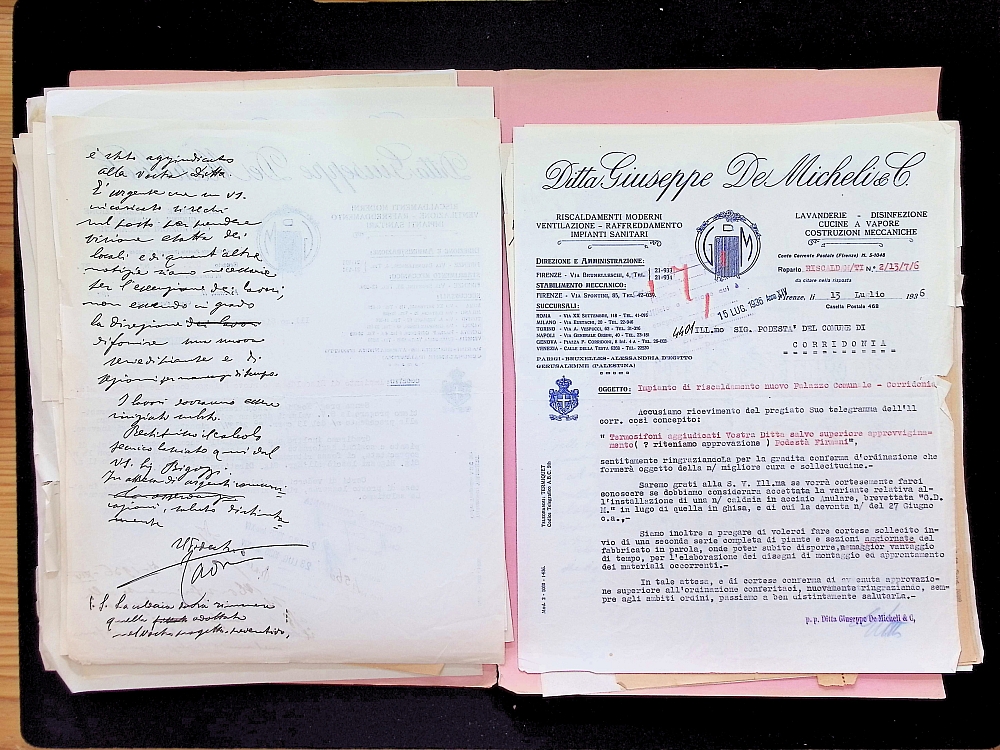 è stato aggiudicato
alla Vostra Ditta.
È urgente che un Vs.
incaricato si rechi
sul posto per prendere
visione esatta dei
locali e di quant'altre
notizie siano necessarie
per l'esecuzione dei lavori,
non essendo in grado
la direzione dei lavori
di fornire una nuova
serie di piante e di
sezioni per mancanza di tempo.
I lavori dovranno essere
iniziati subito.
Restituiamo il calcolo
tecnico lasciato qui dal
Vs. Sig.
In attesa di urgenti comuni-
cazioni, saluto distinta-
mente
P. S. La caldaia dovrà rimanere
quella adottata
nel Vostro progetto-preventivo.
Ditta Giuseppe De Micheli & C.
RISCALDAMENTI MODERNI
VENTILAZIONE - RAFFREDDAMENTO
IMPIANTI SANITARI
LAVANDERIE - DISINFEZIONE
CUCINE A VAPORE
COSTRUZIONI MECCANICHE
G D M
Conto Corrente Postale (Firenze) N. 5-1048
DIREZIONE E AMMINISTRAZIONE:
FIRENZE - VIA BRUNELLESCHI, 4, TEL. 21-931
STABILIMENTO MECCANICO:
FIRENZE - VIA SPONTINI, 85, TEL. 42-039
SUCCURSALI:
ROMA - VIA XX SETTEMBRE, 118 - TEL.
MILANO - VIA EUSTACHI, 20 - TEL.
TORINO - VIA A. VESPUCCI, 63 - TEL.
NAPOLI - VIA GENERALE ORSINI, 40 - TEL.
GENOVA - PIAZZA F. CORRIDONI, 8 INT. 4 - TEL.
VENEZIA - CALLE DELLA TESTA 6359 - TEL.
PARIGI - BRUXELLES - ALESSANDRIA D'EGITTO
GERUSALEMME (PALESTINA)
Reparto RISCALDAM/TI N.° 2/13/7/6
da citare nella risposta
Firenze, li 13 Luglio 1936
Casella Postale 468
15 LUG. 1936 Anno XIV
4401
ILL.mo SIG. PODESTA' DEL COMUNE DI
CORRIDONIA
OGGETTO: Impianto di riscaldamento nuovo Palazzo Comunale - Corridonia
Accusiamo ricevimento del pregiato Suo telegramma dell'11
corr. così concepito:
" Termosifoni aggiudicati Vostra Ditta salvo superiore approvvigina-
mento( ? riteniamo approvazione ) Podestà Firmani",
sentitamente ringraziandoLa per la gradita conferma d'ordinazione che
formerà oggetto della n/ migliore cura e sollecitudine.-
Saremo grati alla S. V. Ill.ma se vorrà cortesemente farci
conoscere se dobbiamo considerare accettata la variante relativa al-
l'installazione di una n/ caldaia in acciaio Anulare, brevettata "G.D.
M." in luogo di quella in ghisa, e di cui la devonta n/ del 27 Giugno
c.a.,-
Siamo inoltre a pregare di volerci fare cortese sollecito in-
vio di una seconda serie completa di piante e sezioni aggiornate del
fabbricato in parola, onde poter subito disporre, a maggior vantaggio
di tempo, per l'elaborazione dei disegni di montaggio ed approntamento
dei materiali occorrenti.-
In tale attesa, e di cortese conferma di avvenuta approvazio-
ne superiore all'ordinazione conferitaci, nuovamente ringraziando, sem-
pre agli ambiti ordini, passiamo a ben distintamente salutarla.-
p. p. Ditta Giuseppe De Micheli & C,
TELEGRAMMI: TERMIQUET
Codice Telegrafico A.B.C. 5th